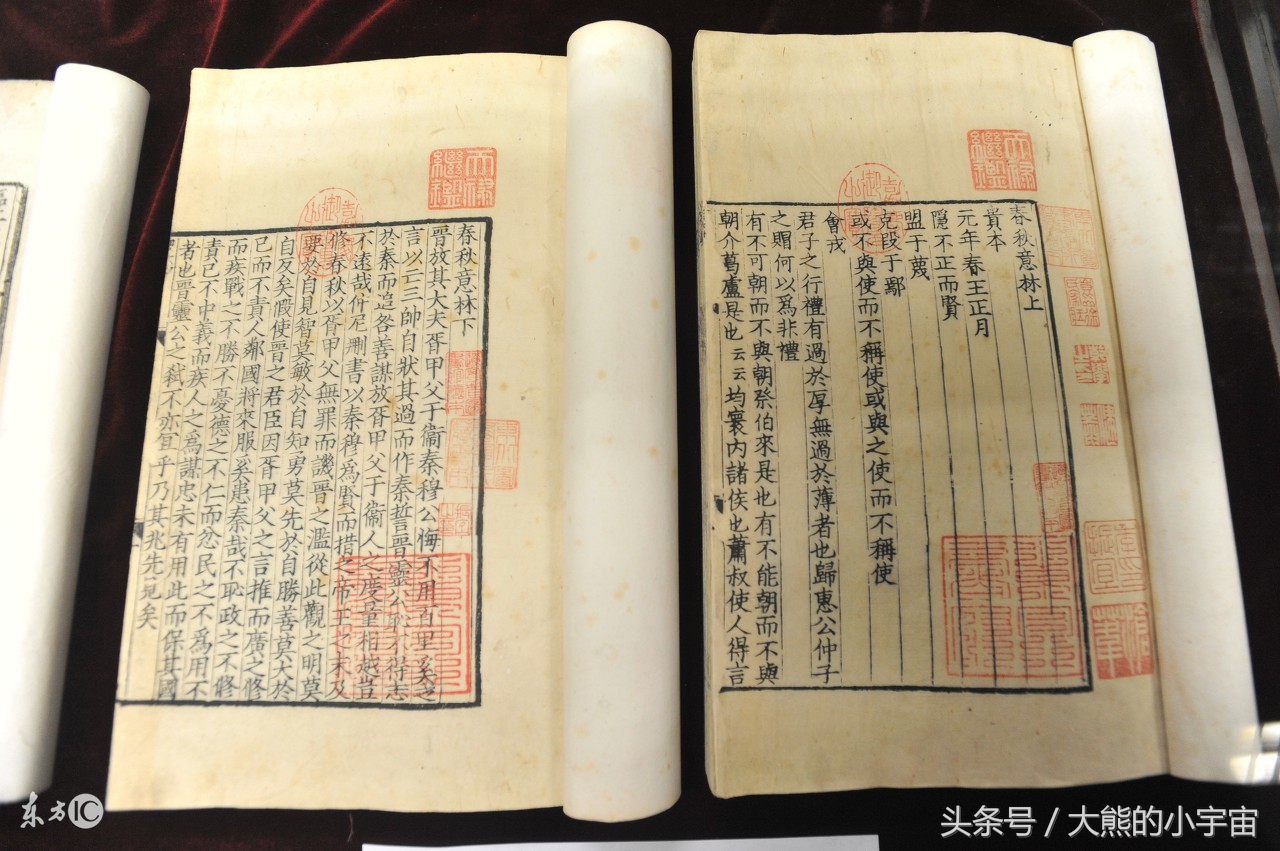 春秋意林上
貴本
元年春王正月
隱不正而賢
盟于蔑
克段于鄢
或不與使而不稱使或與之使而不稱使
會戎
君子之行禮有過於厚無過於薄者也歸惠公仲子
之賵何以爲非禮
有不可朝而不與朝祭伯來是也有不能朝而不與
朝介葛盧是也云云均寰内諸侯也蕭叔使人得言
春秋意林下
晉放其大夫胥甲父于衞秦穆公悔不用百里奚之
言以亡三帥自狀其過而作秦誓晉靈公
於秦而追咎善謀放胥甲父于衞人之度量相越豈
不遠哉仲尼刪書以秦穆爲賢而措之帝王之末及
修春秋以胥甲父無罪而譏晉之濫從此觀之明莫
要於自見智莫敏於自知勇莫先於自勝善莫大於
自反矣假使晉之君臣因胥甲父之言推而廣之修
已而不責人鄰國將來服奚患秦哉不恥政之不修
而疾戰之不勝不憂德之不仁而忿民之不爲用不
責已不中義而疾人之爲謀忠未有用此而保其國
者也晉靈公之弒不亦宜乎乃其兆先見矣
天祿
繼鑑
天祿
繼鑑
东方IC
头条号 / 大熊的小宇宙